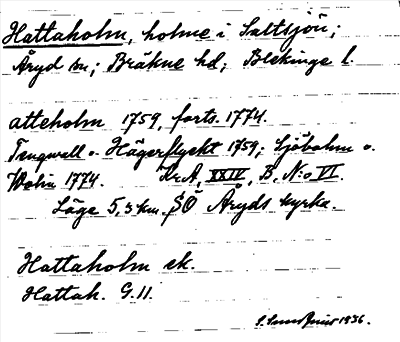 Hattaholm, holme i Saltsjön;
Åryd sn; Bräkne hd; Blekinge l.
atteholm 1759, forts. 1774.
Tengwall o. Hägerflyckt 1759; Sjöbohm o.
Wolin 1774. Kr.A, XXIV, B, N:o VI.
Läge 5,3 km SO Åryds kyrka.
Hattaholm ek.
Hattah. G.11.
S. 1936.